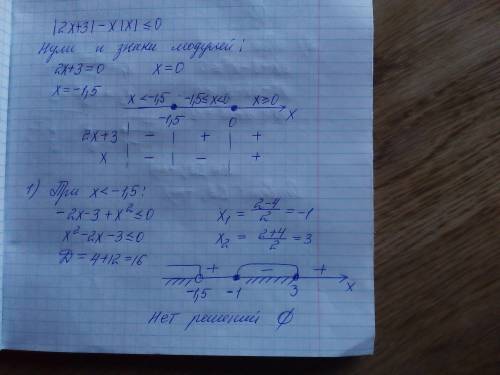 |2x+3| - x|x| ≤ 0
Нули и знаки модулей:
2x+3=0 x=0
x=-1,5
x<-1,5 -1,5≤x<0 x≥0
-1,5 0 x
2x+3 - + +
x - - +
1) При x<-1,5:
-2x-3+x²≤0 x₁ = (2-4)/2 = -1
x²-2x-3≤0 x₂ = (2+4)/2 = 3
D = 4+12=16
+ - +
-1,5 -1 3 x
Нет решений ∅